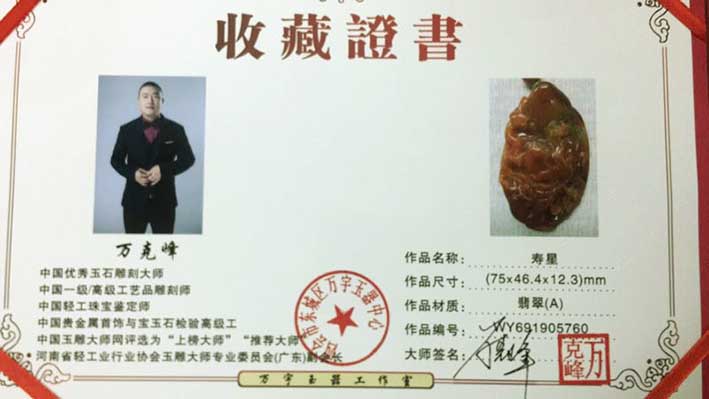 收藏證書
万克峰
中国优秀玉石雕刻大师
中国一级/高级工艺品雕刻师
中国轻工珠宝鉴定师
中国贵金属首饰与宝玉石检验高级工
中国玉雕大师网评选为“上榜大师”“推荐大师”
河南省轻工业行业协会玉雕大师专业委员会(广东)副会长
市东城区万字玉器中心
作品名称: 寿星
作品尺寸: (75x46.4x12.3)mm
作品材质: 翡翠(A)
作品编号: WY691905760
大师签名: 万克峰
万克峰
万字玉器工作室